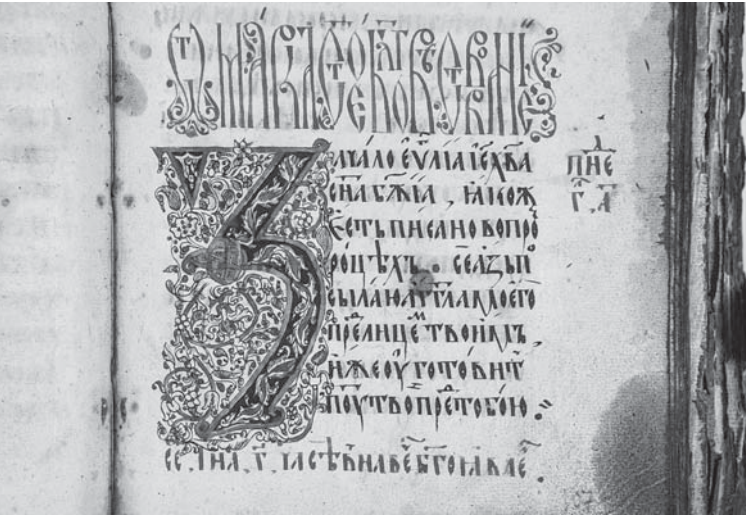 Ѿ МАРКА СТ҃ОЕ БЛГ҃ОВѢСТВОВАНЇЕ
Зачало еѵ҃лїа іс҃ х҃ва
сн҃а бж҃їа, ꙗкож
есть писано во про
роцѣхъ. се азъ по
сылаю агг҃ла моего
пре лицеⷨ твоимъ,
иже оуготовиⷮ
поуть твои преⷣ тобою